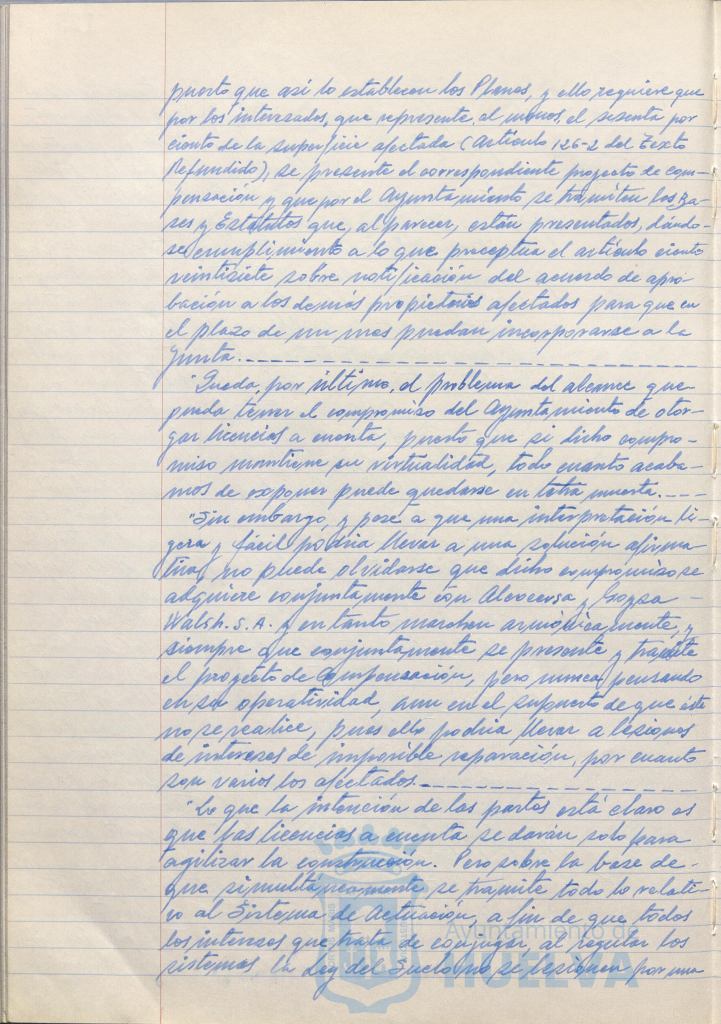 puesto que asi lo establecen los Planes, y ello requiere que
por los interesados, que represente, al menos, el sesenta por
ciento de la superficie afectada (Artículo 126-2 del Texto
Refundido), se presente el correspondiente proyecto de com-
pensación y que por el Ayuntamiento se tramiten las Ba-
ses y Estatutos que, al parecer, están presentados, dándo-
se cumplimiento a lo que preceptua el artículo ciento
veintisiete sobre notificación del acuerdo de apro-
bación a los demás propietarios afectados para que en
el plazo de un mes puedan incorporarse a la
Junta.
"Queda, por último, el problema del alcance que
pueda tener el compromiso del Ayuntamiento de otor-
gar licencias a cuenta, puesto que si dicho compro-
miso mantiene su virtualidad, todo cuanto acaba-
mos de exponer puede quedarse en letra muerta.
"Sin embargo, y pese a que una interpretación li-
gera y fácil podría llevar a una solución afirma-
tiva, no puede olvidarse que dicho compromiso se
adquiere conjuntamente con y
Walsh. S.A. y en tanto marchen armónicamente, y
siempre que conjuntamente se presente y tramite
el proyecto de Compensación, pero nunca pensando
en su operatividad, aun en el supuesto de que éste
no se realice, pues ello podría llevar a lesiones
de intereses de imposible reparación, por cuanto
son varios los afectados.
"Lo que la intención de las partes está claro es
que las licencias a cuenta se darán solo para
agilizar la construcción. Pero sobre la base de
que simultáneamente se tramite todo lo relati-
vo al Sistema de Actuación, a fin de que todos
los intereses que trata de conjugar, al regular los
sistemas la Ley del Suelo no se lesionen por una
Ayuntamiento de
HUELVA